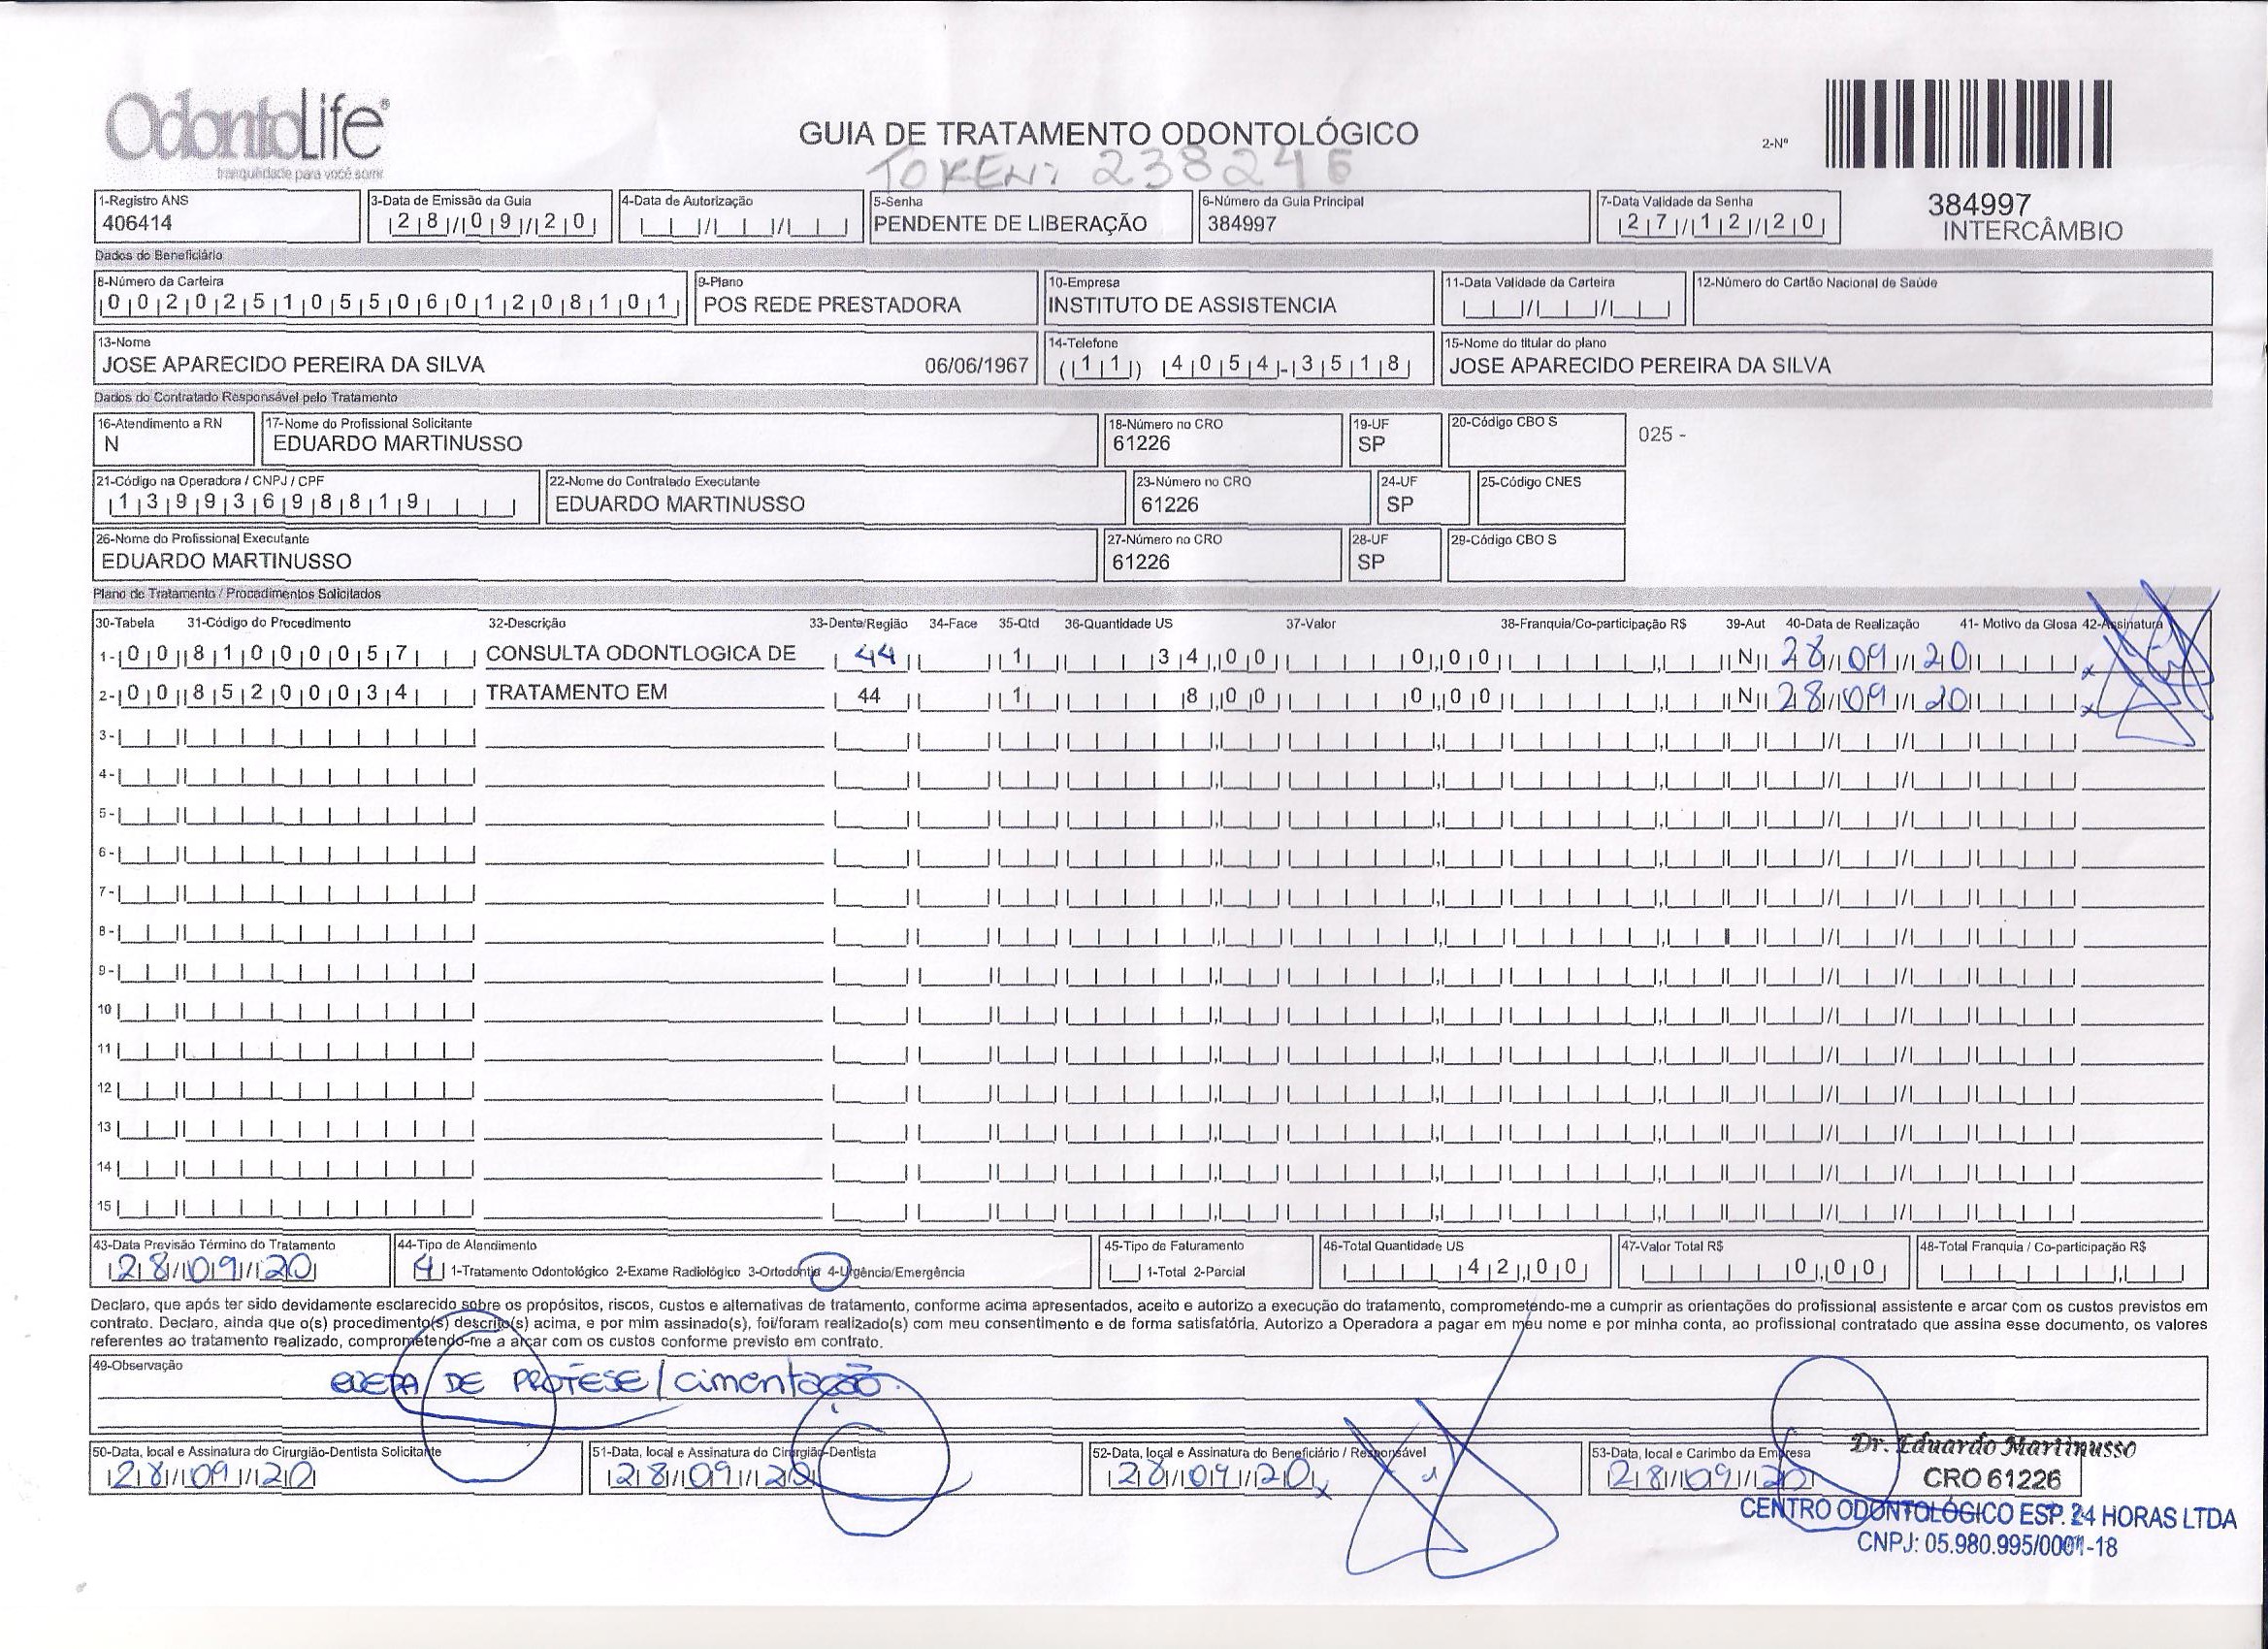 OdontoLife®
tranquilidade para você sorrir
GUIA DE TRATAMENTO ODONTOLÓGICO
TOKEN: 238246
2-Nº
384997
INTERCÂMBIO
1-Registro ANS
406414
3-Data de Emissão da Guia
28/09/20
4-Data de Autorização
5-Senha
PENDENTE DE LIBERAÇÃO
6-Número da Guia Principal
384997
7-Data Validade da Senha
27/12/20
Dados do Beneficiário
8-Número da Carteira
00202510550601208101
9-Plano
POS REDE PRESTADORA
10-Empresa
INSTITUTO DE ASSISTENCIA
11-Data Validade da Carteira
12-Número do Cartão Nacional de Saúde
13-Nome
JOSE APARECIDO PEREIRA DA SILVA 06/06/1967
14-Telefone
(11) 4054-3518
15-Nome do titular do plano
JOSE APARECIDO PEREIRA DA SILVA
Dados do Contratado Responsável pelo Tratamento
16-Atendimento a RN
N
17-Nome do Profissional Solicitante
EDUARDO MARTINUSSO
18-Número no CRO
61226
19-UF
SP
20-Código CBO S
025 -
21-Código na Operadora / CNPJ / CPF
13993698819
22-Nome do Contratado Executante
EDUARDO MARTINUSSO
23-Número no CRO
61226
24-UF
SP
25-Código CNES
26-Nome do Profissional Executante
EDUARDO MARTINUSSO
27-Número no CRO
61226
28-UF
SP
29-Código CBO S
Plano de Tratamento / Procedimentos Solicitados
30-Tabela 31-Código do Procedimento 32-Descrição 33-Dente/Região 34-Face 35-Qtd 36-Quantidade US 37-Valor 38-Franquia/Co-participação R$ 39-Aut 40-Data de Realização 41- Motivo da Glosa 42-Assinatura
1- 00 81000057 CONSULTA ODONTLOGICA DE 44 1 34,00 0,00 N 28/09/20
2- 00 85200034 TRATAMENTO EM 44 1 8,00 0,00 N 28/09/20
3-
4-
5-
6-
7-
8-
9-
10
11
12
13
14
15
43-Data Previsão Término do Tratamento
28/09/20
44-Tipo de Atendimento
4 1-Tratamento Odontológico 2-Exame Radiológico 3-Ortodontia 4-Urgência/Emergência
45-Tipo de Faturamento
1-Total 2-Parcial
46-Total Quantidade US
42,00
47-Valor Total R$
0,00
48-Total Franquia / Co-participação R$
Declaro, que após ter sido devidamente esclarecido sobre os propósitos, riscos, custos e alternativas de tratamento, conforme acima apresentados, aceito e autorizo a execução do tratamento, comprometendo-me a cumprir as orientações do profissional assistente e arcar com os custos previstos em
contrato. Declaro, ainda que o(s) procedimento(s) descrito(s) acima, e por mim assinado(s), foi/foram realizado(s) com meu consentimento e de forma satisfatória. Autorizo a Operadora a pagar em meu nome e por minha conta, ao profissional contratado que assina esse documento, os valores
referentes ao tratamento realizado, comprometendo-me a arcar com os custos conforme previsto em contrato.
49-Observação
DE PROTESE/cimentação.
50-Data, local e Assinatura do Cirurgião-Dentista Solicitante
28/09/20
51-Data, local e Assinatura do Cirurgião-Dentista
28/09/20
52-Data, local e Assinatura do Beneficiário / Responsável
28/09/20
53-Data, local e Carimbo da Empresa
28/09/20
Dr. Eduardo Martinusso
CRO 61226
CENTRO ODONTOLÓGICO ESP. 24 HORAS LTDA
CNPJ: 05.980.995/0001-18